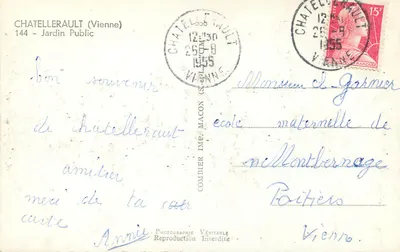 CHATELLERAULT (Vienne)
144 - Jardin Public
CHATELLERAULT
12H30
25-8
1955
VIENNE
CHATELLERAULT
12H30
25-8
1955
VIENNE
15F
bon souvenir
de chatelleraut
amitier
merci de la
carte
Annie
COMBIER IMP. MACON
Monsieur et Garnier
école maternelle
de Montbernage
Poitiers
Vienne.
Photographie Véritable
Reproduction Interdite